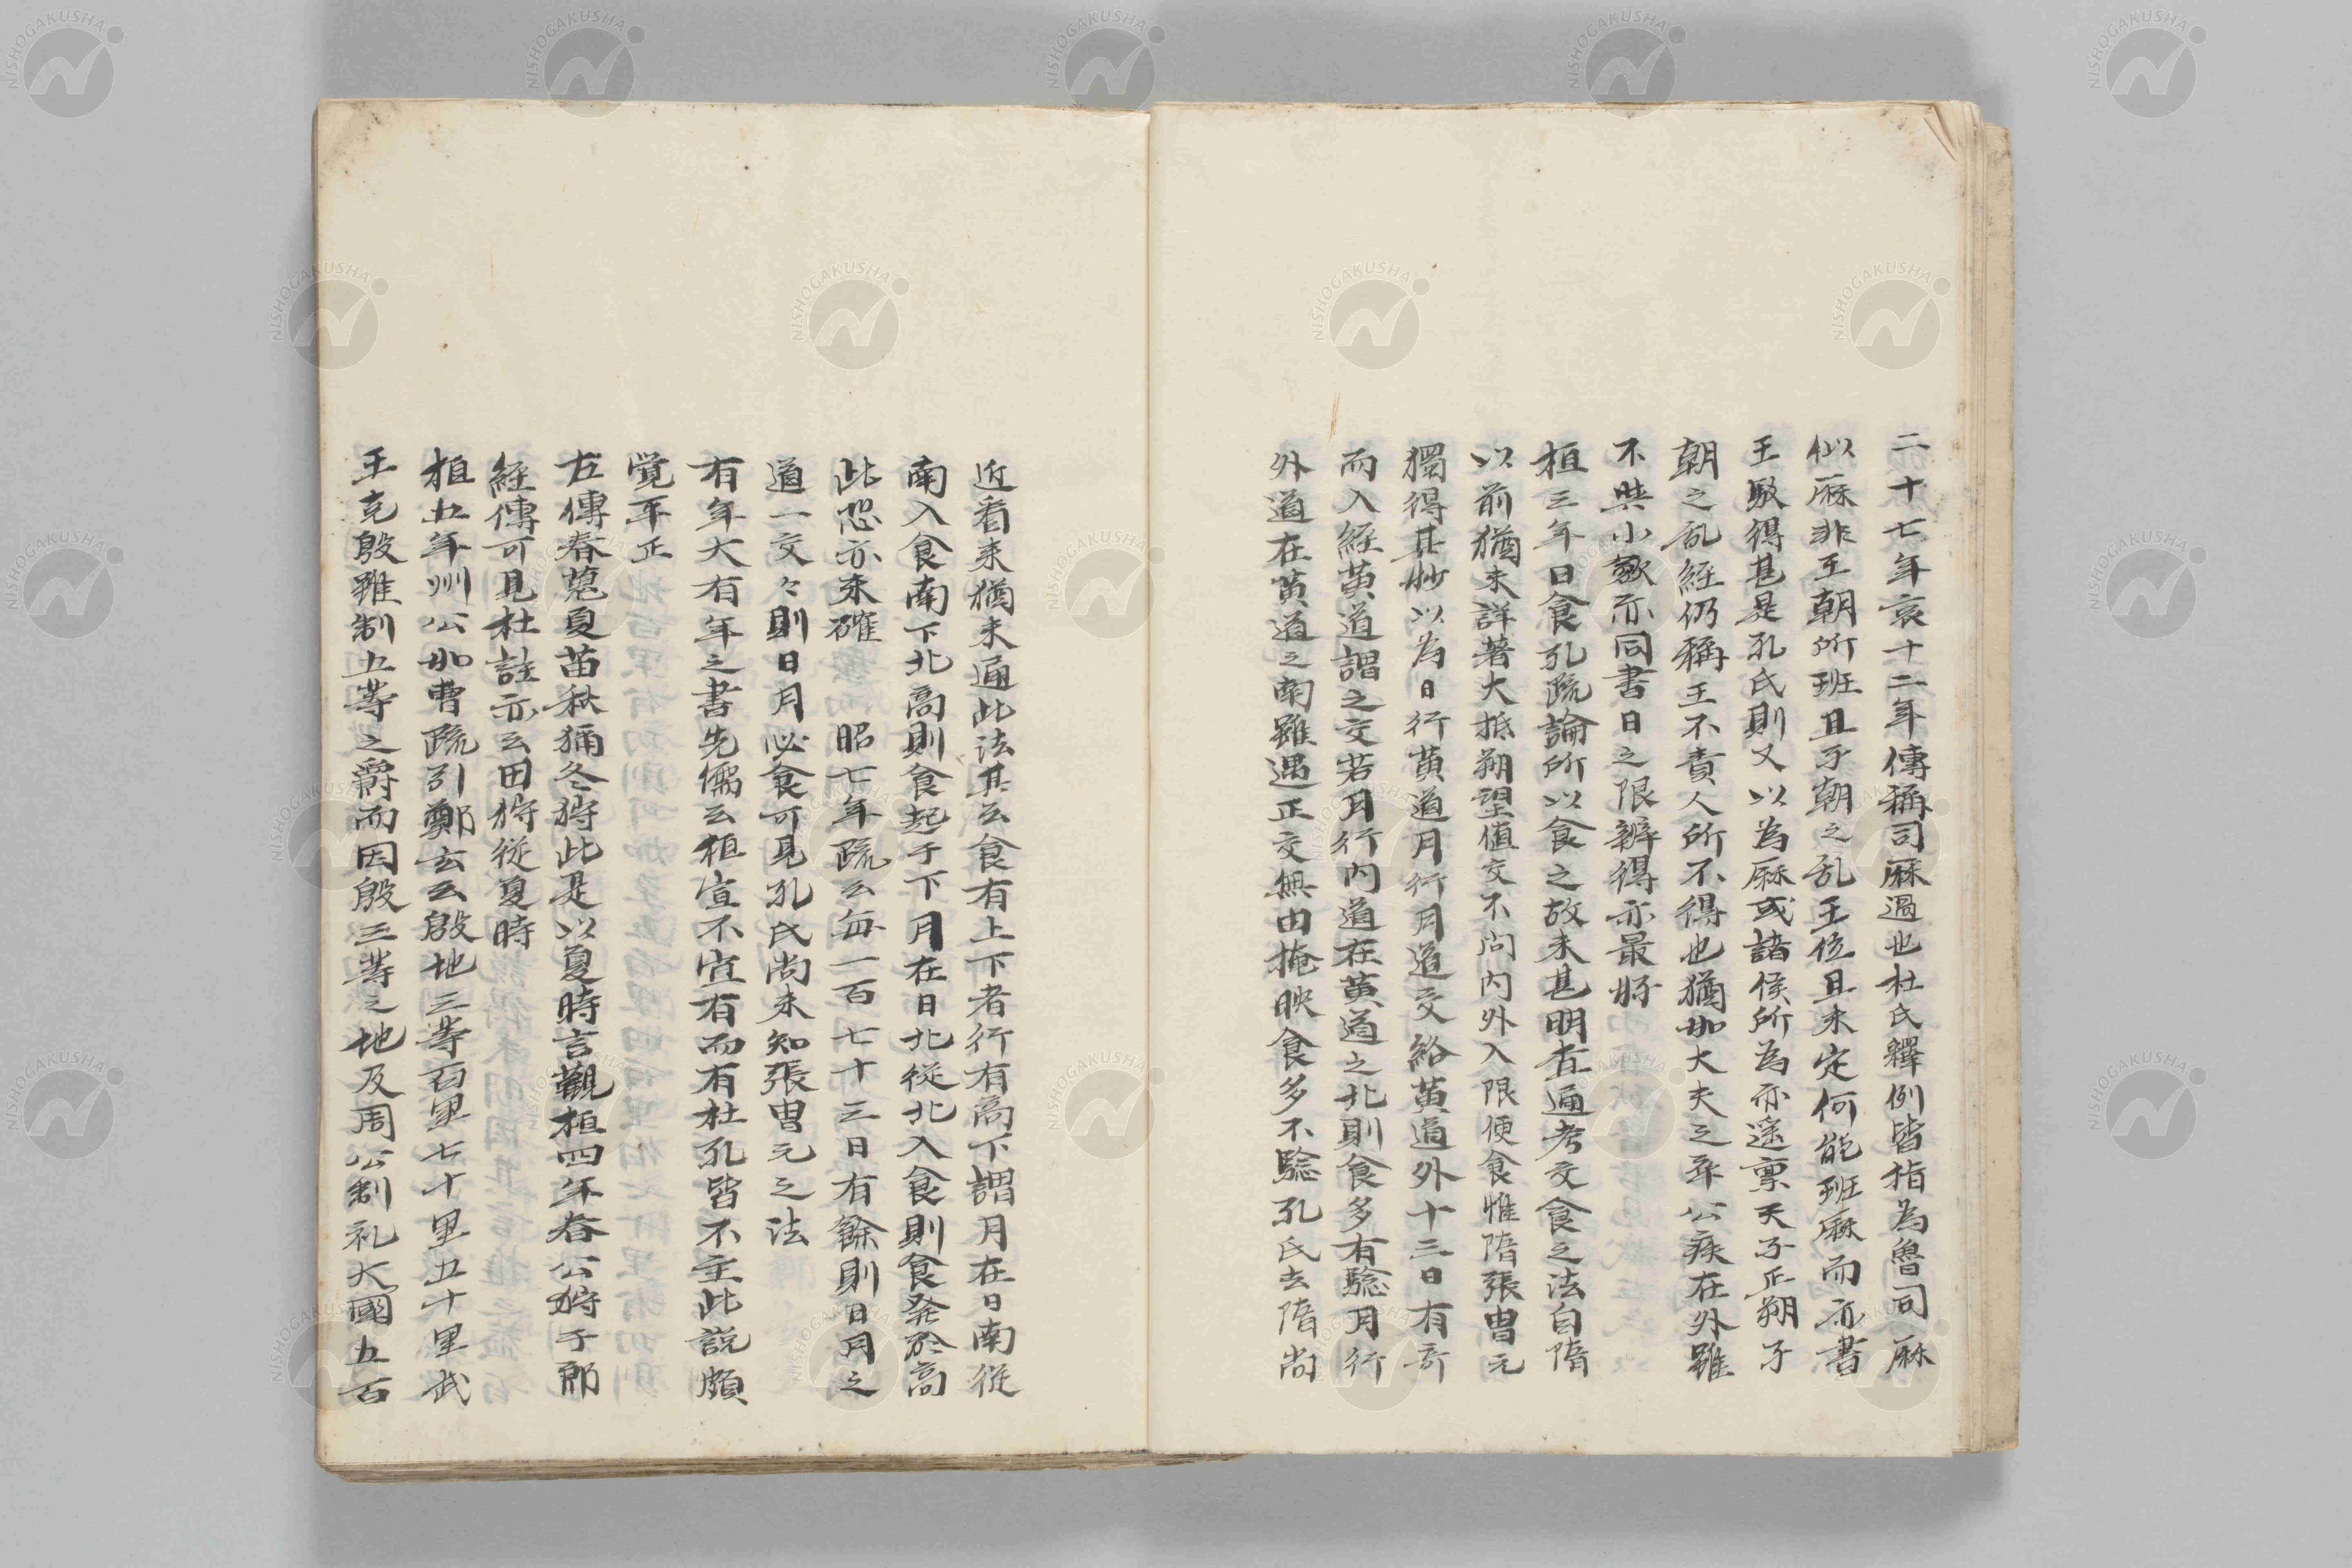 二十七年哀十二年傳稱司厤過也杜氏釋例皆指為魯司厤
似厤非王朝所班且子朝之乱王位且未定何能班厤而亦書
王駁得甚是孔氏則又以為厤或諸侯所為亦遥稟天子正朔子
朝之乱經仍稱王不責人所不得也猶如大夫之卒公疾在外雖
不與小斂亦同書日之限辨得亦最好
桓三年日食孔疏論所以食之故未甚明查通考交食之法自隋
以前猶未詳著大抵朔望值交不问内外入限便食惟隋張冑元
獨得其妙以為日行黄道月行月道交絡黄道外十三日有奇
而入經黄道謂之交若月行内道在黄道之北則食多有驗月行
外道在黄道之南雖遇正交無由掩映食多不驗孔氏去隋尚
近看来猶未通此法其云食有上下者行有高下謂月在日南従
南入食南下北高則食起于下月在日北従北入食則食発於高
此恐亦未確 昭七年疏云每一百七十三日有餘則日月之
道一交々則日月必食可見孔氏尚未知張冑元之法
有年大有年之書先儒云桓宣不宜有而有杜孔皆不主此説頗
覚平正
左傳春蒐夏苗秋獮冬狩此是以夏時言觀桓四年春公狩于郎
經傳可見杜註亦云田狩従夏時
桓五年州公如曹疏引鄭玄云殷地三等百里七十里五十里武
王克殷雖制五等之爵而因殷三等之地及周公制礼大國五百
NISHOGAKUSHA